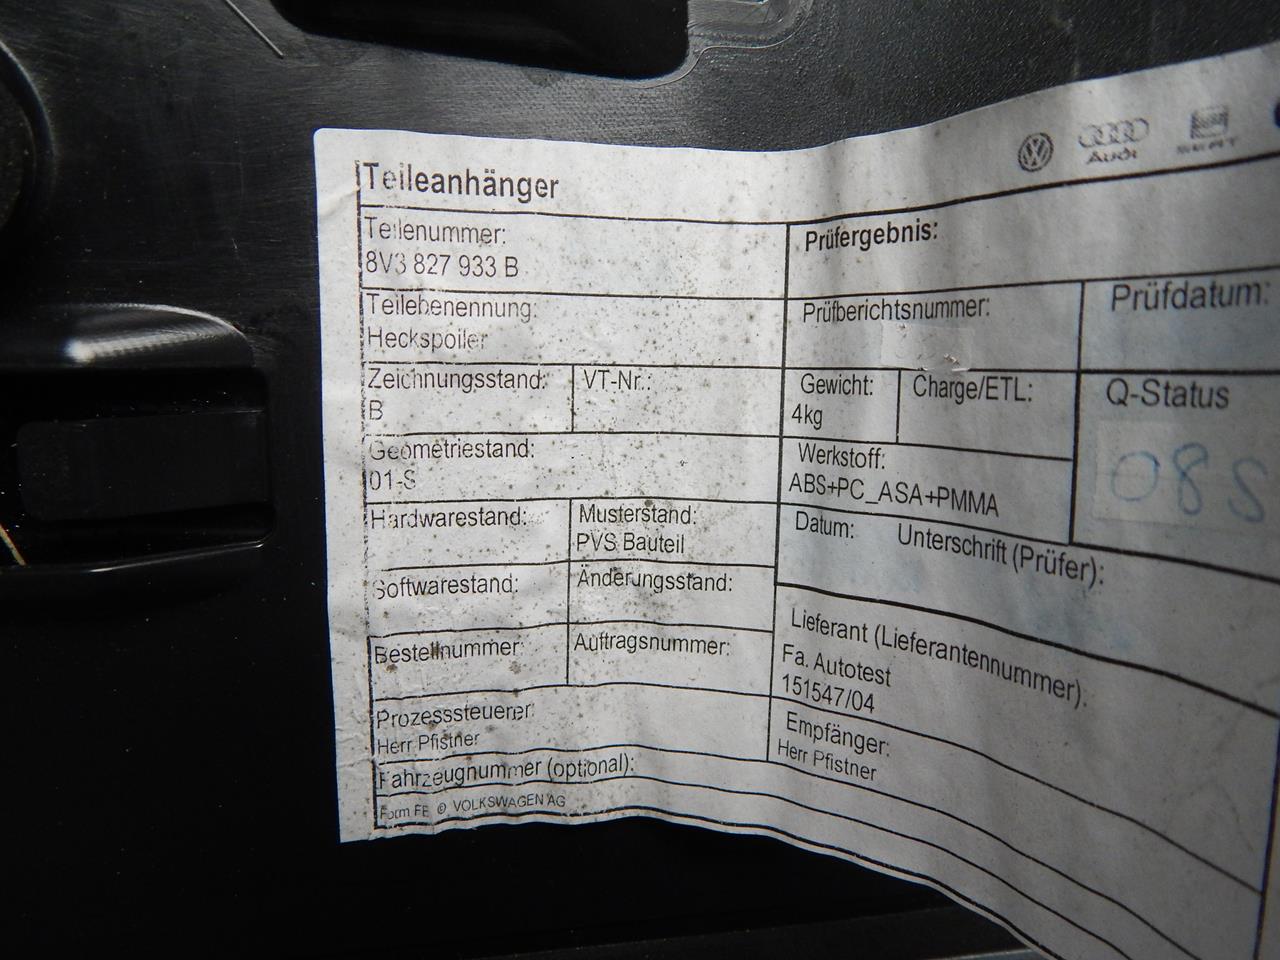 Audi
SEAT
Teileanhänger
Teilenummer:
8V3 827 933 B
Prüfergebnis:
Teilebenennung:
Heckspoiler
Prüfberichtsnummer:
Prüfdatum:
Zeichnungsstand:
B
VT-Nr.:
Gewicht:
4kg
Charge/ETL:
Q-Status
08S
Geometriestand:
01-S
Werkstoff:
ABS+PC_ASA+PMMA
Hardwarestand:
Musterstand:
PVS Bauteil
Datum:
Unterschrift (Prüfer):
Softwarestand:
Änderungsstand:
Bestellnummer:
Auftragsnummer:
Lieferant (Lieferantennummer):
Fa. Autotest
151547/04
Prozesssteuerer:
Herr Pfistner
Empfänger:
Herr Pfistner
Fahrzeugnummer (optional):
Form FE © VOLKSWAGEN AG